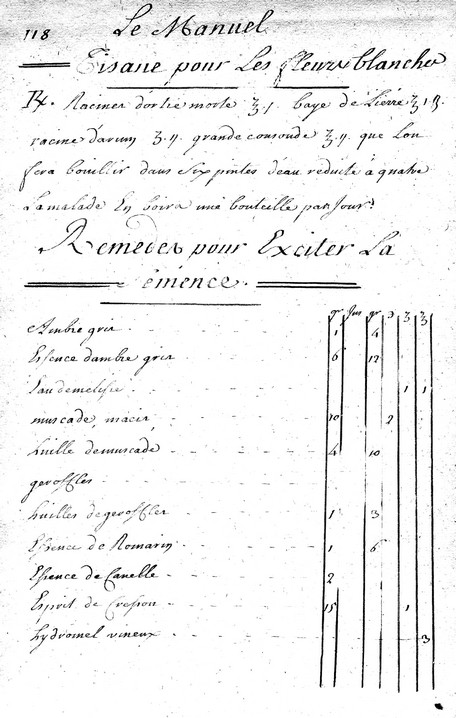 118 Le Manuel
Tisane pour Les fleurs blanches
℞. Racines d'ortie morte ℥ j. baye de Lierre ℥ 1 ß.
racine d'arum ℥ ij. grande consoude ℥ ij. que Lon
fera bouillir dans six pintes d'eau reduite à quatre
La malade En boira une bouteille par Jour.
Remedes pour Exciter La
semence.
gr gr ℈ ʒ ℥
Ambre gris 1 4
Essence dambre gris 6 12
Eau de melisse 1 1
muscade, macis 10 2
huille demuscade 4 10
geroffles
huilles de geroffles 1 3
Essence de Romarin 1 6
Essence de Canelle 2
Esprit de Cresson 15 1
hydromel vineux 3